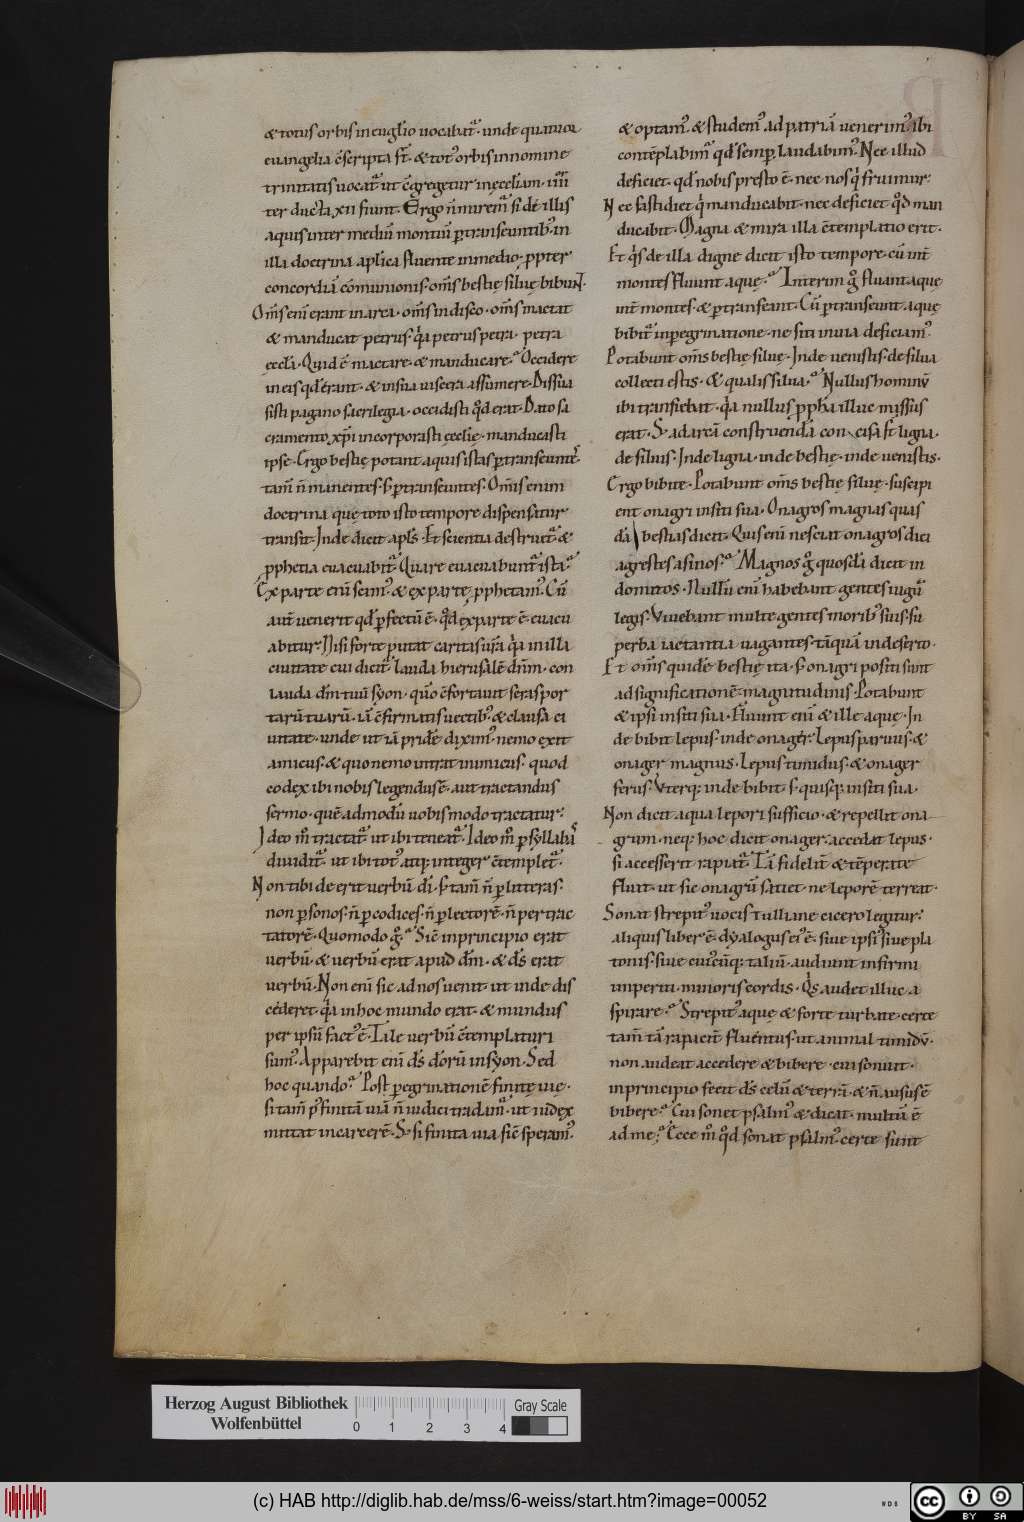 & totus orbis in euglio uocabat᷑· unde quatuor
euangelia c̄scripta st̄· & tot᷒ orbis in nomine
trinitatis uocat᷑ ut c̄gregetur in ęccl̄iam· iiii
ter ducta xii fiunt· Ergo n̄ mirem᷑ si de illis
aquis inter mediū montiū ꝑtranseuntib᷒· in
illa doctrina aplica fluente in medio· ꝓpter
concordiā cōmunionis· om̄s bestię siluę bibuN·
Om̄s enī erant in area· om̄s in disco· om̄s mactat
& manducat petrus· q̓a petrus petra· petra
ęccl̄a· Quid ē mactare· & manducare? Occidere
in eis qđ erant· & in sua uiscera assumere· Dissua
sisti pagano sacrilegia· occidisti qđ erat· Dato sa
cramento xp̄i incorporasti ęcclię· manducasti
ipse· Ergo bestię potant aquis istas ꝑtranseunte᷒·
tam̄ n̄ manentes· s; ꝑtranseuntes· Om̄is enim
doctrina quę toto isto tempore dispensatur
transit· Inde dicit apl̄s· Et scientia destruet᷑· &
ꝓphetia euacuabit᷑· Quare euacuabunt᷑ ista?
Ex parte enī scim᷒· & ex parte ꝓphetam᷒· Cū
aut̄ uenerit qđ ꝑfectū ē· qđ ex parte ē· euacu
abitur· Nisi forte putat caritas ur̄a q̓a in illa
ciuitate cui dicit᷑ lauda hierusalē dn̄m· con
lauda dm̄ tuū syon· qm̄ c̄fortauit seras por
tarū tuarū· iā c̄firmatis uectib᷒· & clausa ci
uitate· unde ut iā pridē dixim᷒· nemo exit
amicus· & quo nemo intrat inimicus· quod
codex ibi nobis legendus ē· aut tractandus
sermo· quē admodū uobis modo tractatur·
Ideo m̄ tractat᷑· ut ibi teneat᷑· Ideo m̄ ꝑ syllabas
diuidit᷑· ut ibi tot᷒ atq; integer c̄templet᷑·
Non tibi de erit uerbū dī· s; tam̄ n̄ ꝑ litteras·
non ꝑ sonos· n̄ ꝑ codices· n̄ ꝑ lectorē· n̄ per trac
tatorē· Quomodo g̊? Sic̄ in principio erat
uerbū· & uerbū erat apud dm̄· & ds̄ erat
uerbū· Non enī sic ad nos uenit· ut inde dis
cederet· q̓a in hoc mundo erat· & mundus
per ipsū fact᷒ ē· Tale uerbū c̄templaturi
sum᷒· Apparebit enī ds̄ deorū in syon· Sed
hoc quando? Post ꝑegrinationē finitę uię·
si tam̄ p᷒ finitā uiā n̄ iudici tradam᷑· ut iudex
mittat in carcerē· S; si finita uia sic̄ speram᷒·
& optam᷒· & studem᷒· ad patriā uenerim᷒· ibi
contēplabim᷑ qđ semꝑ laudabim᷒· Nec illud
deficiet· qđ nobis presto ē· nec nos q̓ fruimur·
Nec fastidiet q̓ manducabit· nec deficiet qđ man
ducabit· Magna & mira illa c̄templatio erit·
Et q̓s de illa digne dicit isto tempore· cū int̄
montes fluunt aquę? Interim g̊ fluant aquę
int̄ montes· & ꝑtranseant· Cū ꝑtranseunt aquę
bibit᷑ in ꝑegrinatione· ne siti in uia deficiam᷒·
Potabunt om̄s bestię siluę· Inde uenistis· de silua
collecti estis· & qualis silua? Nullus hominū
ibi transiebat· q̓a nullus ꝓpha illuc missus
erat· S; ad arcā construendā con cisa st̄ ligna·
de siluis· Inde ligna· inde bestię· inde uenistis·
Ergo bibite· Potabunt om̄s bestię siluę· suscipi
ent onagri in siti sua· Onagros magnas quas
dā bestias dicit· Quis enī nesciat onagros dici
agrestes asinos? Magnos g̊ quosdā dicit in
domitos· Nullū enī habebant gentes iugū
legis· Viuebant multe gentes morib᷒ suis· su
perba iactantia uagantes· tāquā in deserto·
Et om̄s quidē bestię ita· s; onagri positi sunt
ad significationē magnitudinis· Potabunt
& ipsi in siti sua· Fluunt enī & ille aquę· In
de bibit lepus· inde onager· Lepus paruus· &
onager magnus· Lepus timidus· & onager
ferus· Vterq; inde bibit· s; quisq; in siti sua·
Non dicit aqua lepori sufficio· & repellit ona
grum· neq; hoc dicit onager· accedat lepus·
si accesserit rapiat᷑· Tā fidelit̄ & tēperate
fluit· ut sic onagrū satiet· ne leporē terreat·
Sonat strepit᷒ uocis tulliane· cicero legitur·
aliquis liber ē· dyalogus ei᷒ ē· siue ipsi᷒ siue pla
tonis· siue cui᷒cūq; taliū· audiunt infirmi
imperiti· minoris cordis· Q̓s audet illuc a
spirare? Strepit᷒ aquę & forte turbate· certe
tam̄ tā rapacit̄ fluentis· ut animal timidū·
non audeat accedere & bibere· cui sonuit·
in principio fecit ds̄ celū & terrā· & n̄ ausus ē
bibere? Cui sonet psalm᷒· & dicat· multū ē
ad me? Ecce m̄ qđ sonat psalm᷒· certe sunt
Herzog August Bibliothek
Wolfenbüttel
0 1 2 3 4
Gray Scale
(c) HAB http://diglib.hab.de/mss/6-weiss/start.htm?image=00052
WDB
cc
BY SA